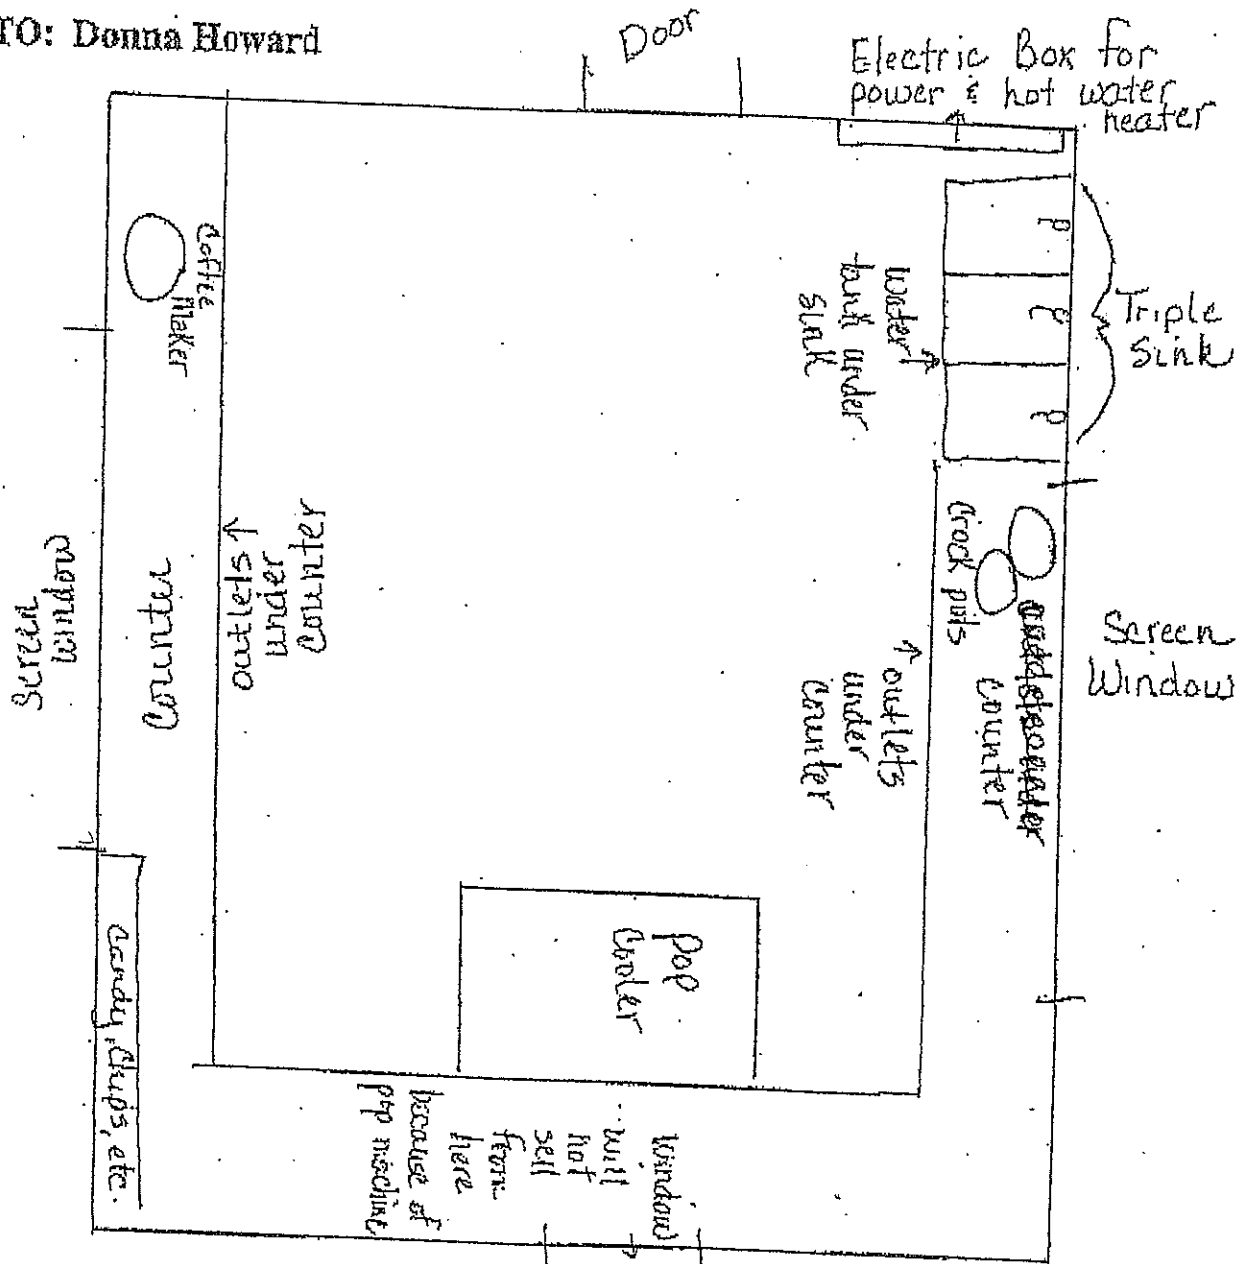 TO: Donna Howard
Door
Electric Box for
power & hot water
heater
Coffee
Maker
water
tank under
sink
Triple
Sink
Screen
Window
Counter
outlets
under
Counter
Crock pots
counter
outlets
under
Counter
Screen
Window
Pop
Cooler
Candy, Chips, etc.
Window
will
not
sell
from
here
because of
pop machine